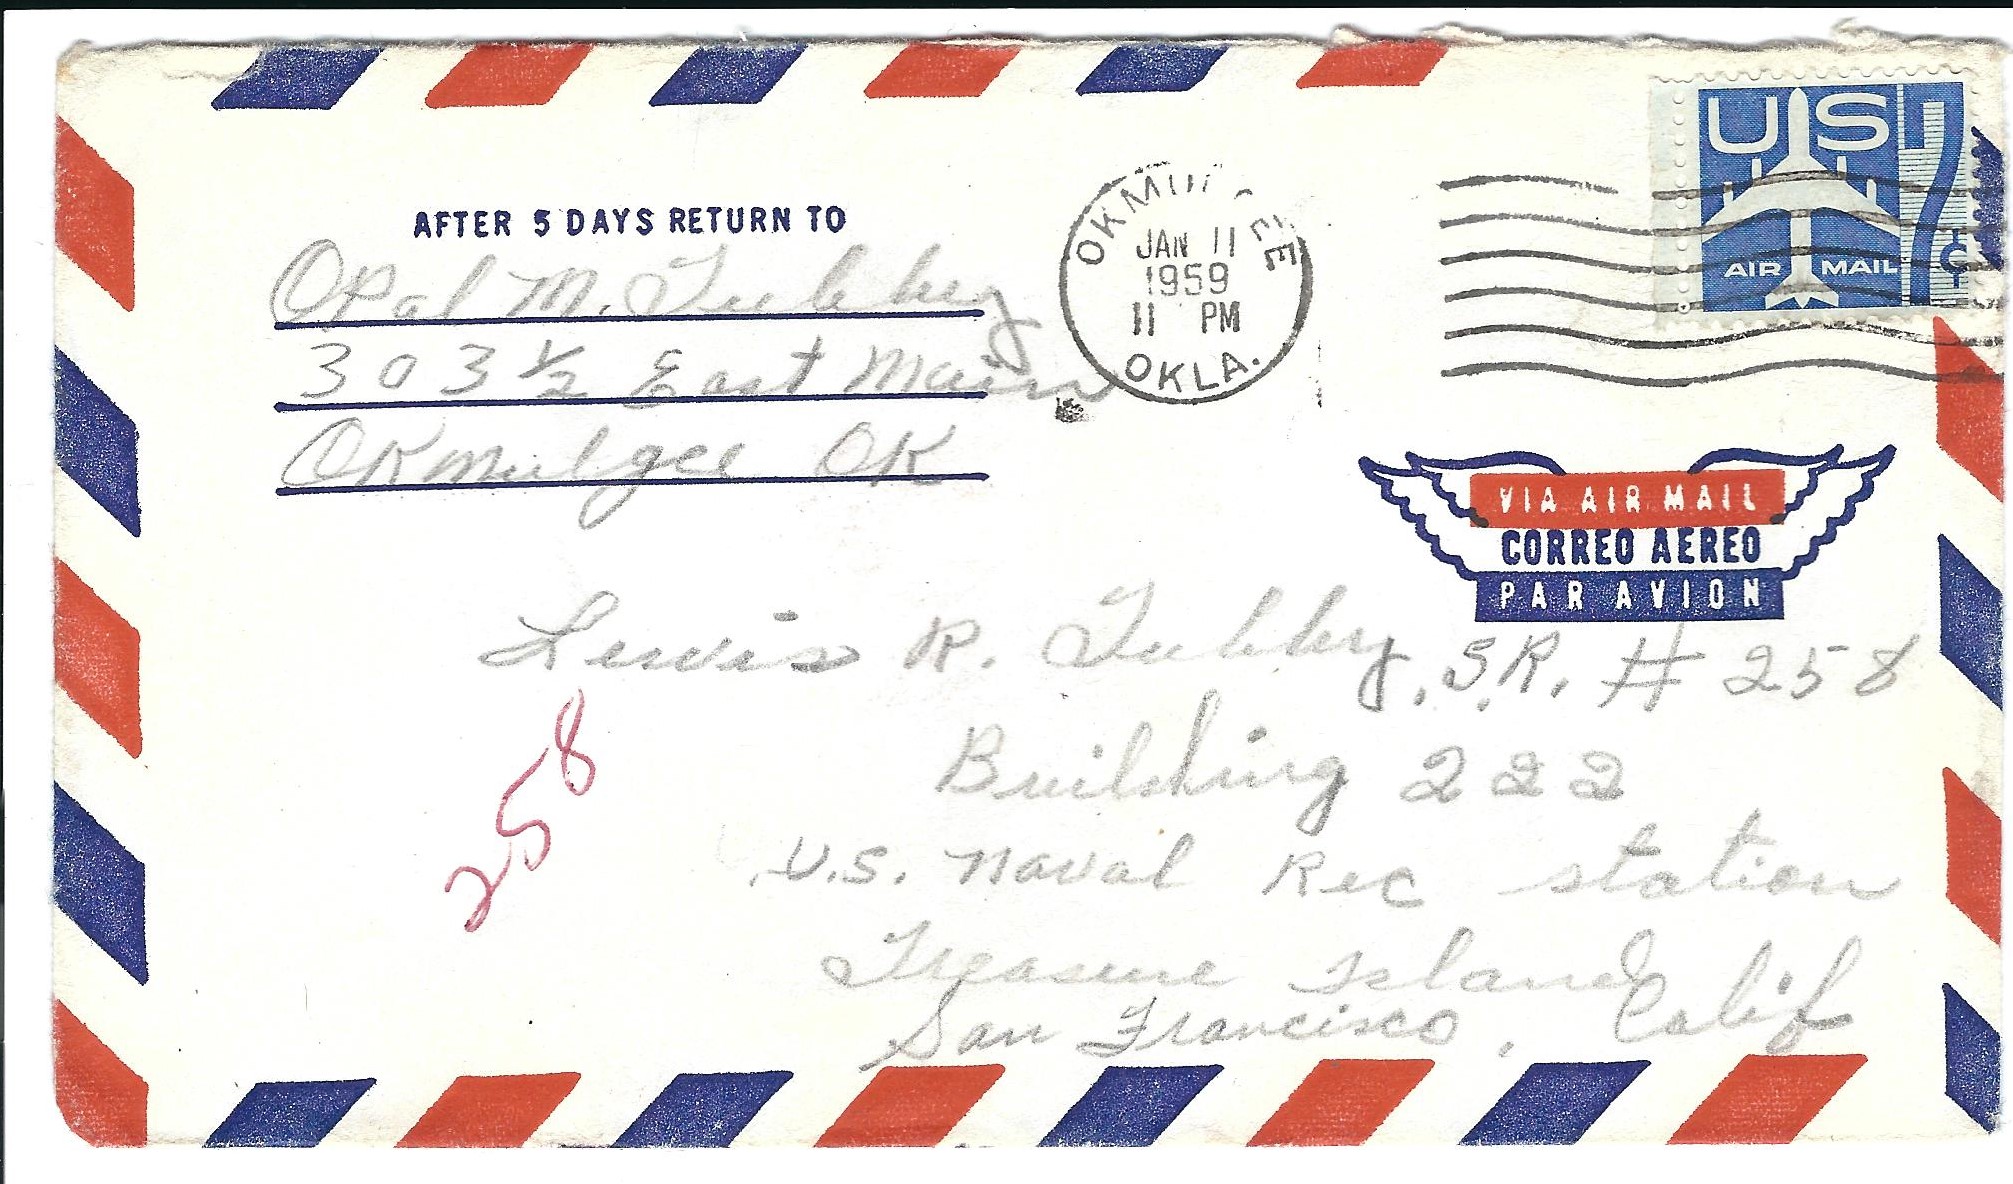 AFTER 5 DAYS RETURN TO
Opal M. Tubby
303 ½ East Main
Okmulgee OK
OKMULGEE
JAN 11
1959
11 PM
OKLA.
US 7¢
AIR MAIL
VIA AIR MAIL
CORREO AEREO
PAR AVION
Lewis R. Tubby, SR. # 258
Building 222
U.S. Naval Rec station
Treasure Island
San Francisco, Calif
258